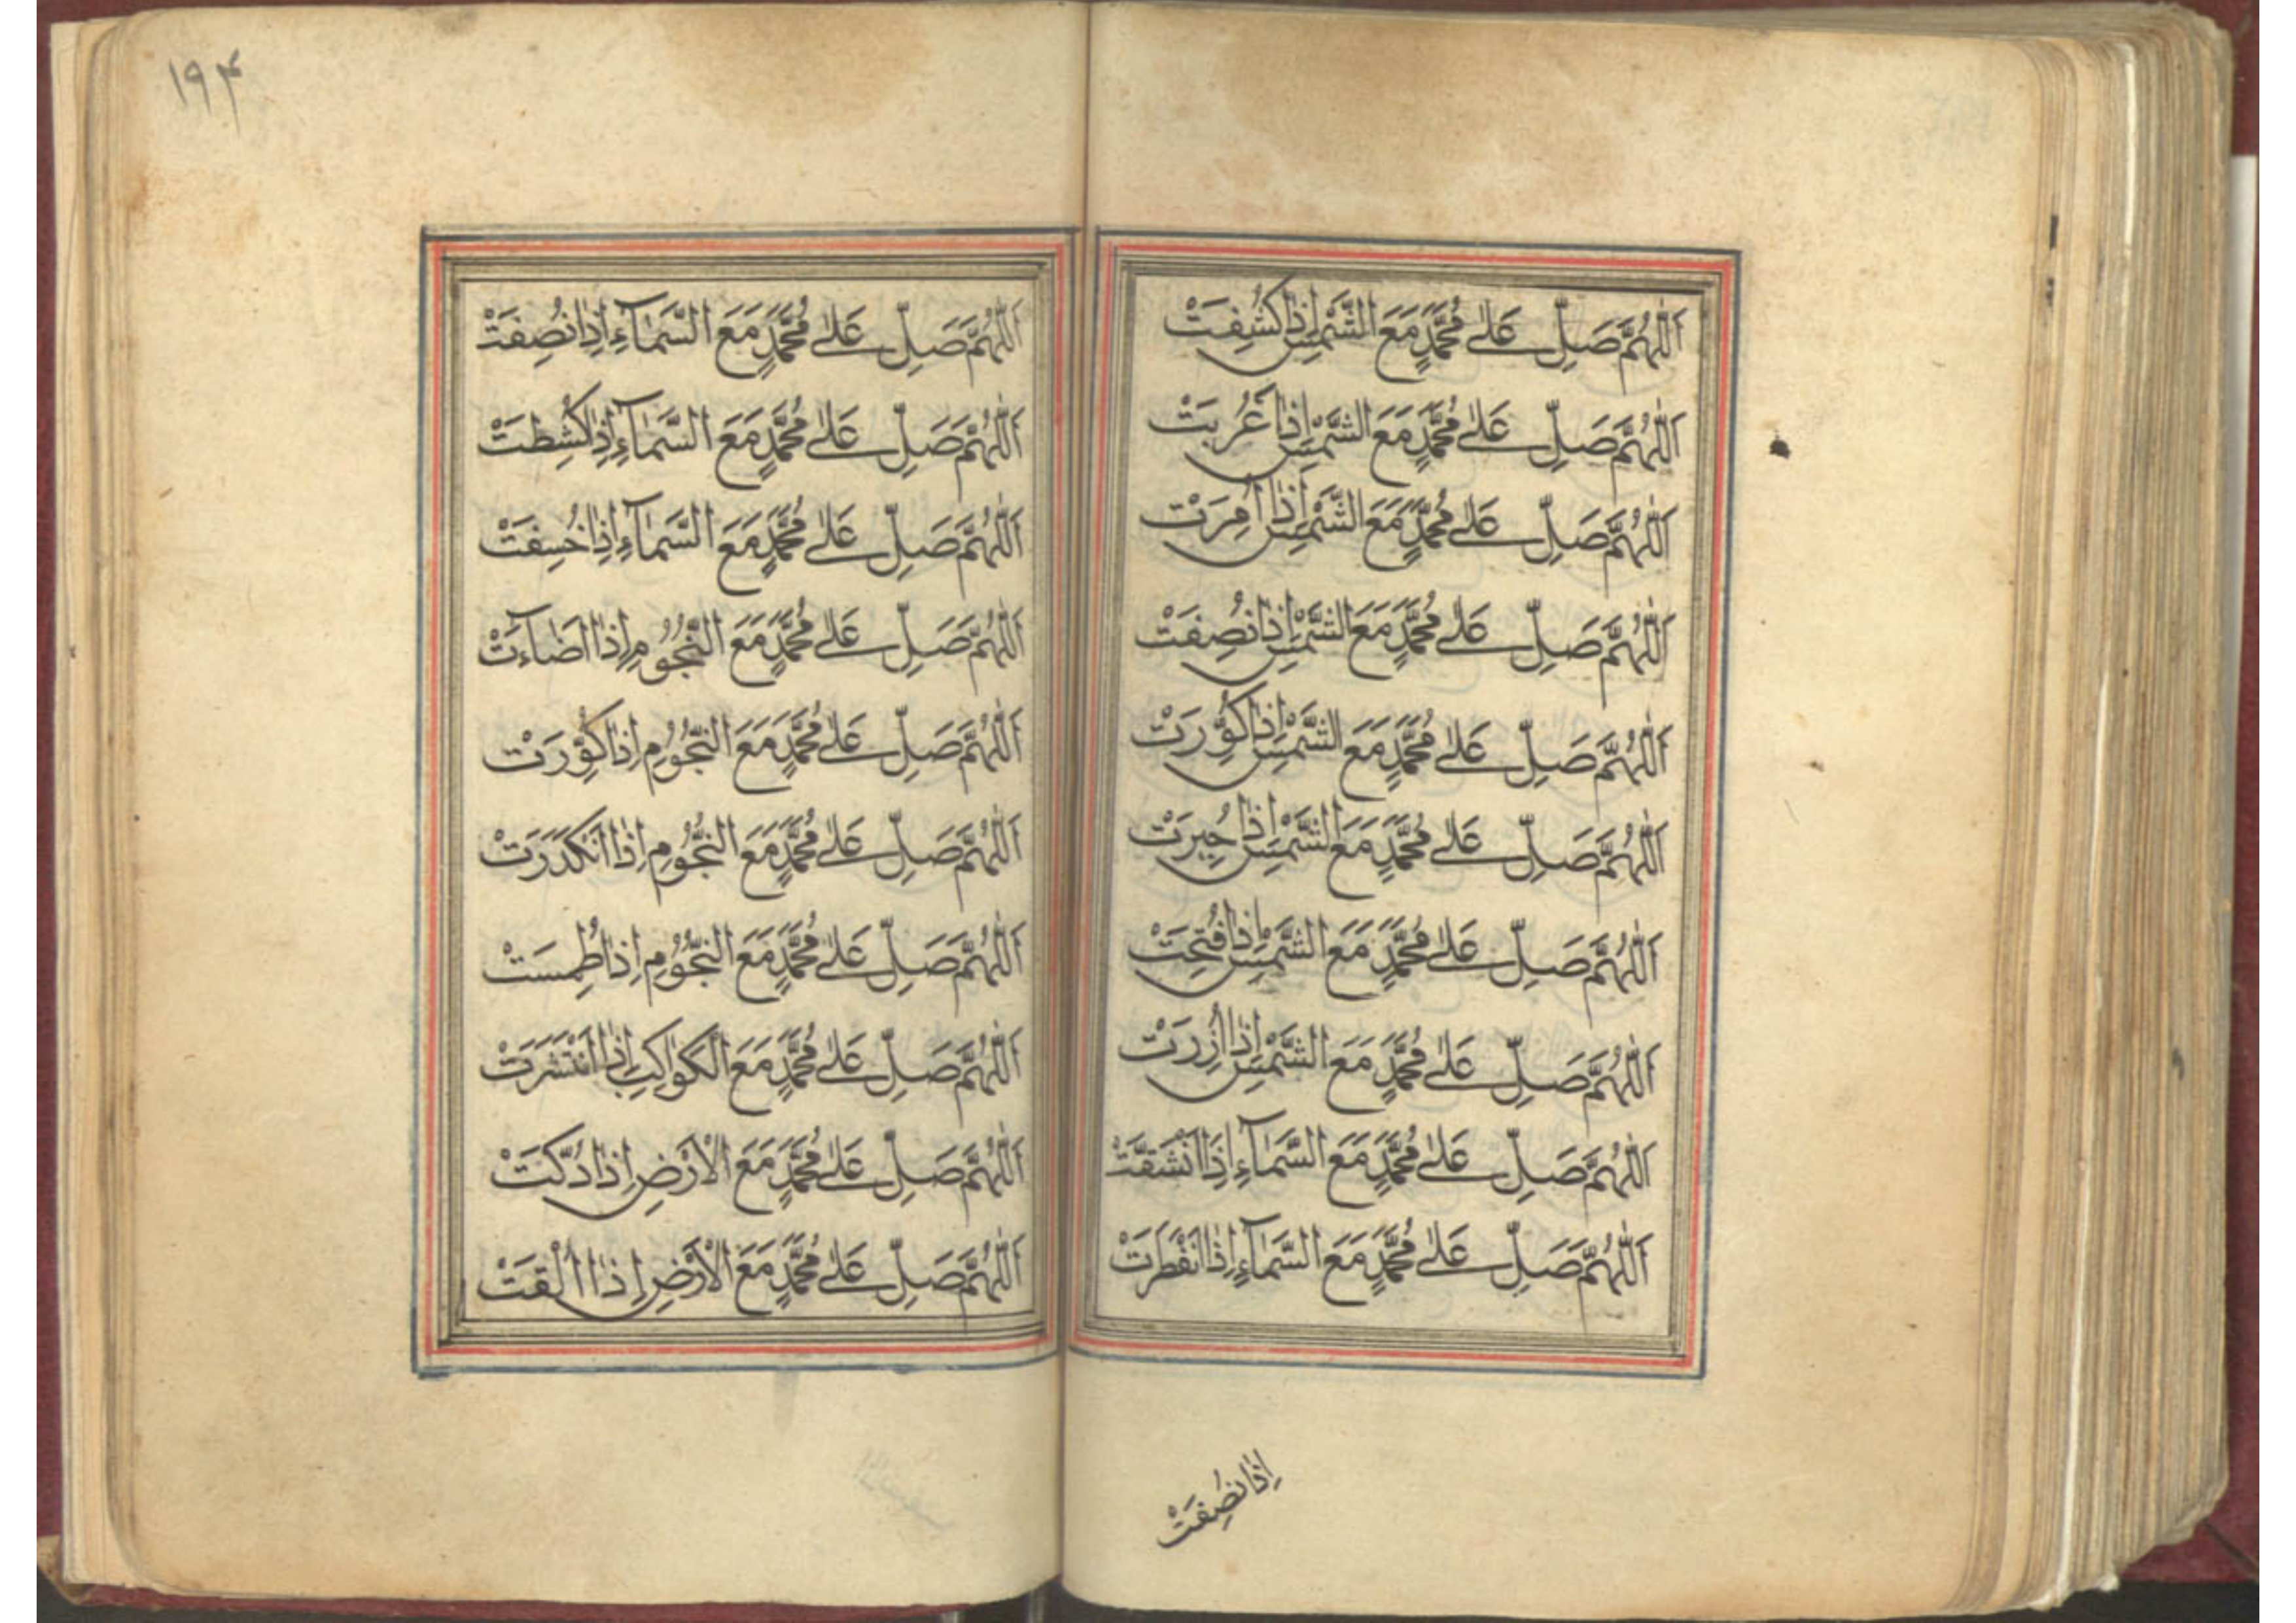 اَللّٰهُمَّ صَلِّ عَلٰى مُحَمَّدٍ مَعَ الشَّمْسِ اِذَا كُشِفَتْ
اَللّٰهُمَّ صَلِّ عَلٰى مُحَمَّدٍ مَعَ الشَّمْسِ اِذَا غَرُبَتْ
اَللّٰهُمَّ صَلِّ عَلٰى مُحَمَّدٍ مَعَ الشَّمْسِ اِذَا اُمِرَتْ
اَللّٰهُمَّ صَلِّ عَلٰى مُحَمَّدٍ مَعَ الشَّمْسِ اِذَا نُصِفَتْ
اَللّٰهُمَّ صَلِّ عَلٰى مُحَمَّدٍ مَعَ الشَّمْسِ اِذَا كُوِّرَتْ
اَللّٰهُمَّ صَلِّ عَلٰى مُحَمَّدٍ مَعَ الشَّمْسِ اِذَا جُبِرَتْ
اَللّٰهُمَّ صَلِّ عَلٰى مُحَمَّدٍ مَعَ الشَّمْسِ اِذَا فُتِحَتْ
اَللّٰهُمَّ صَلِّ عَلٰى مُحَمَّدٍ مَعَ الشَّمْسِ اِذَا اُزِرَتْ
اَللّٰهُمَّ صَلِّ عَلٰى مُحَمَّدٍ مَعَ السَّمَآءِ اِذَا انْشَقَّتْ
اَللّٰهُمَّ صَلِّ عَلٰى مُحَمَّدٍ مَعَ السَّمَآءِ اِذَا انْفَطَرَتْ
اِذَا نُصِفَتْ
١٩۴
اَللّٰهُمَّ صَلِّ عَلٰى مُحَمَّدٍ مَعَ السَّمَآءِ اِذَا نُصِفَتْ
اَللّٰهُمَّ صَلِّ عَلٰى مُحَمَّدٍ مَعَ السَّمَآءِ اِذَا كُشِطَتْ
اَللّٰهُمَّ صَلِّ عَلٰى مُحَمَّدٍ مَعَ السَّمَآءِ اِذَا خُسِفَتْ
اَللّٰهُمَّ صَلِّ عَلٰى مُحَمَّدٍ مَعَ النُّجُوْمِ اِذَا اَضَآءَتْ
اَللّٰهُمَّ صَلِّ عَلٰى مُحَمَّدٍ مَعَ النُّجُوْمِ اِذَا كُوِّرَتْ
اَللّٰهُمَّ صَلِّ عَلٰى مُحَمَّدٍ مَعَ النُّجُوْمِ اِذَا انْكَدَرَتْ
اَللّٰهُمَّ صَلِّ عَلٰى مُحَمَّدٍ مَعَ النُّجُوْمِ اِذَا طُمِسَتْ
اَللّٰهُمَّ صَلِّ عَلٰى مُحَمَّدٍ مَعَ الْكَوَاكِبِ اِذَا انْتَشَرَتْ
اَللّٰهُمَّ صَلِّ عَلٰى مُحَمَّدٍ مَعَ الْاَرْضِ اِذَا دُكَّتْ
اَللّٰهُمَّ صَلِّ عَلٰى مُحَمَّدٍ مَعَ الْاَرْضِ اِذَا اُلْقَتْ